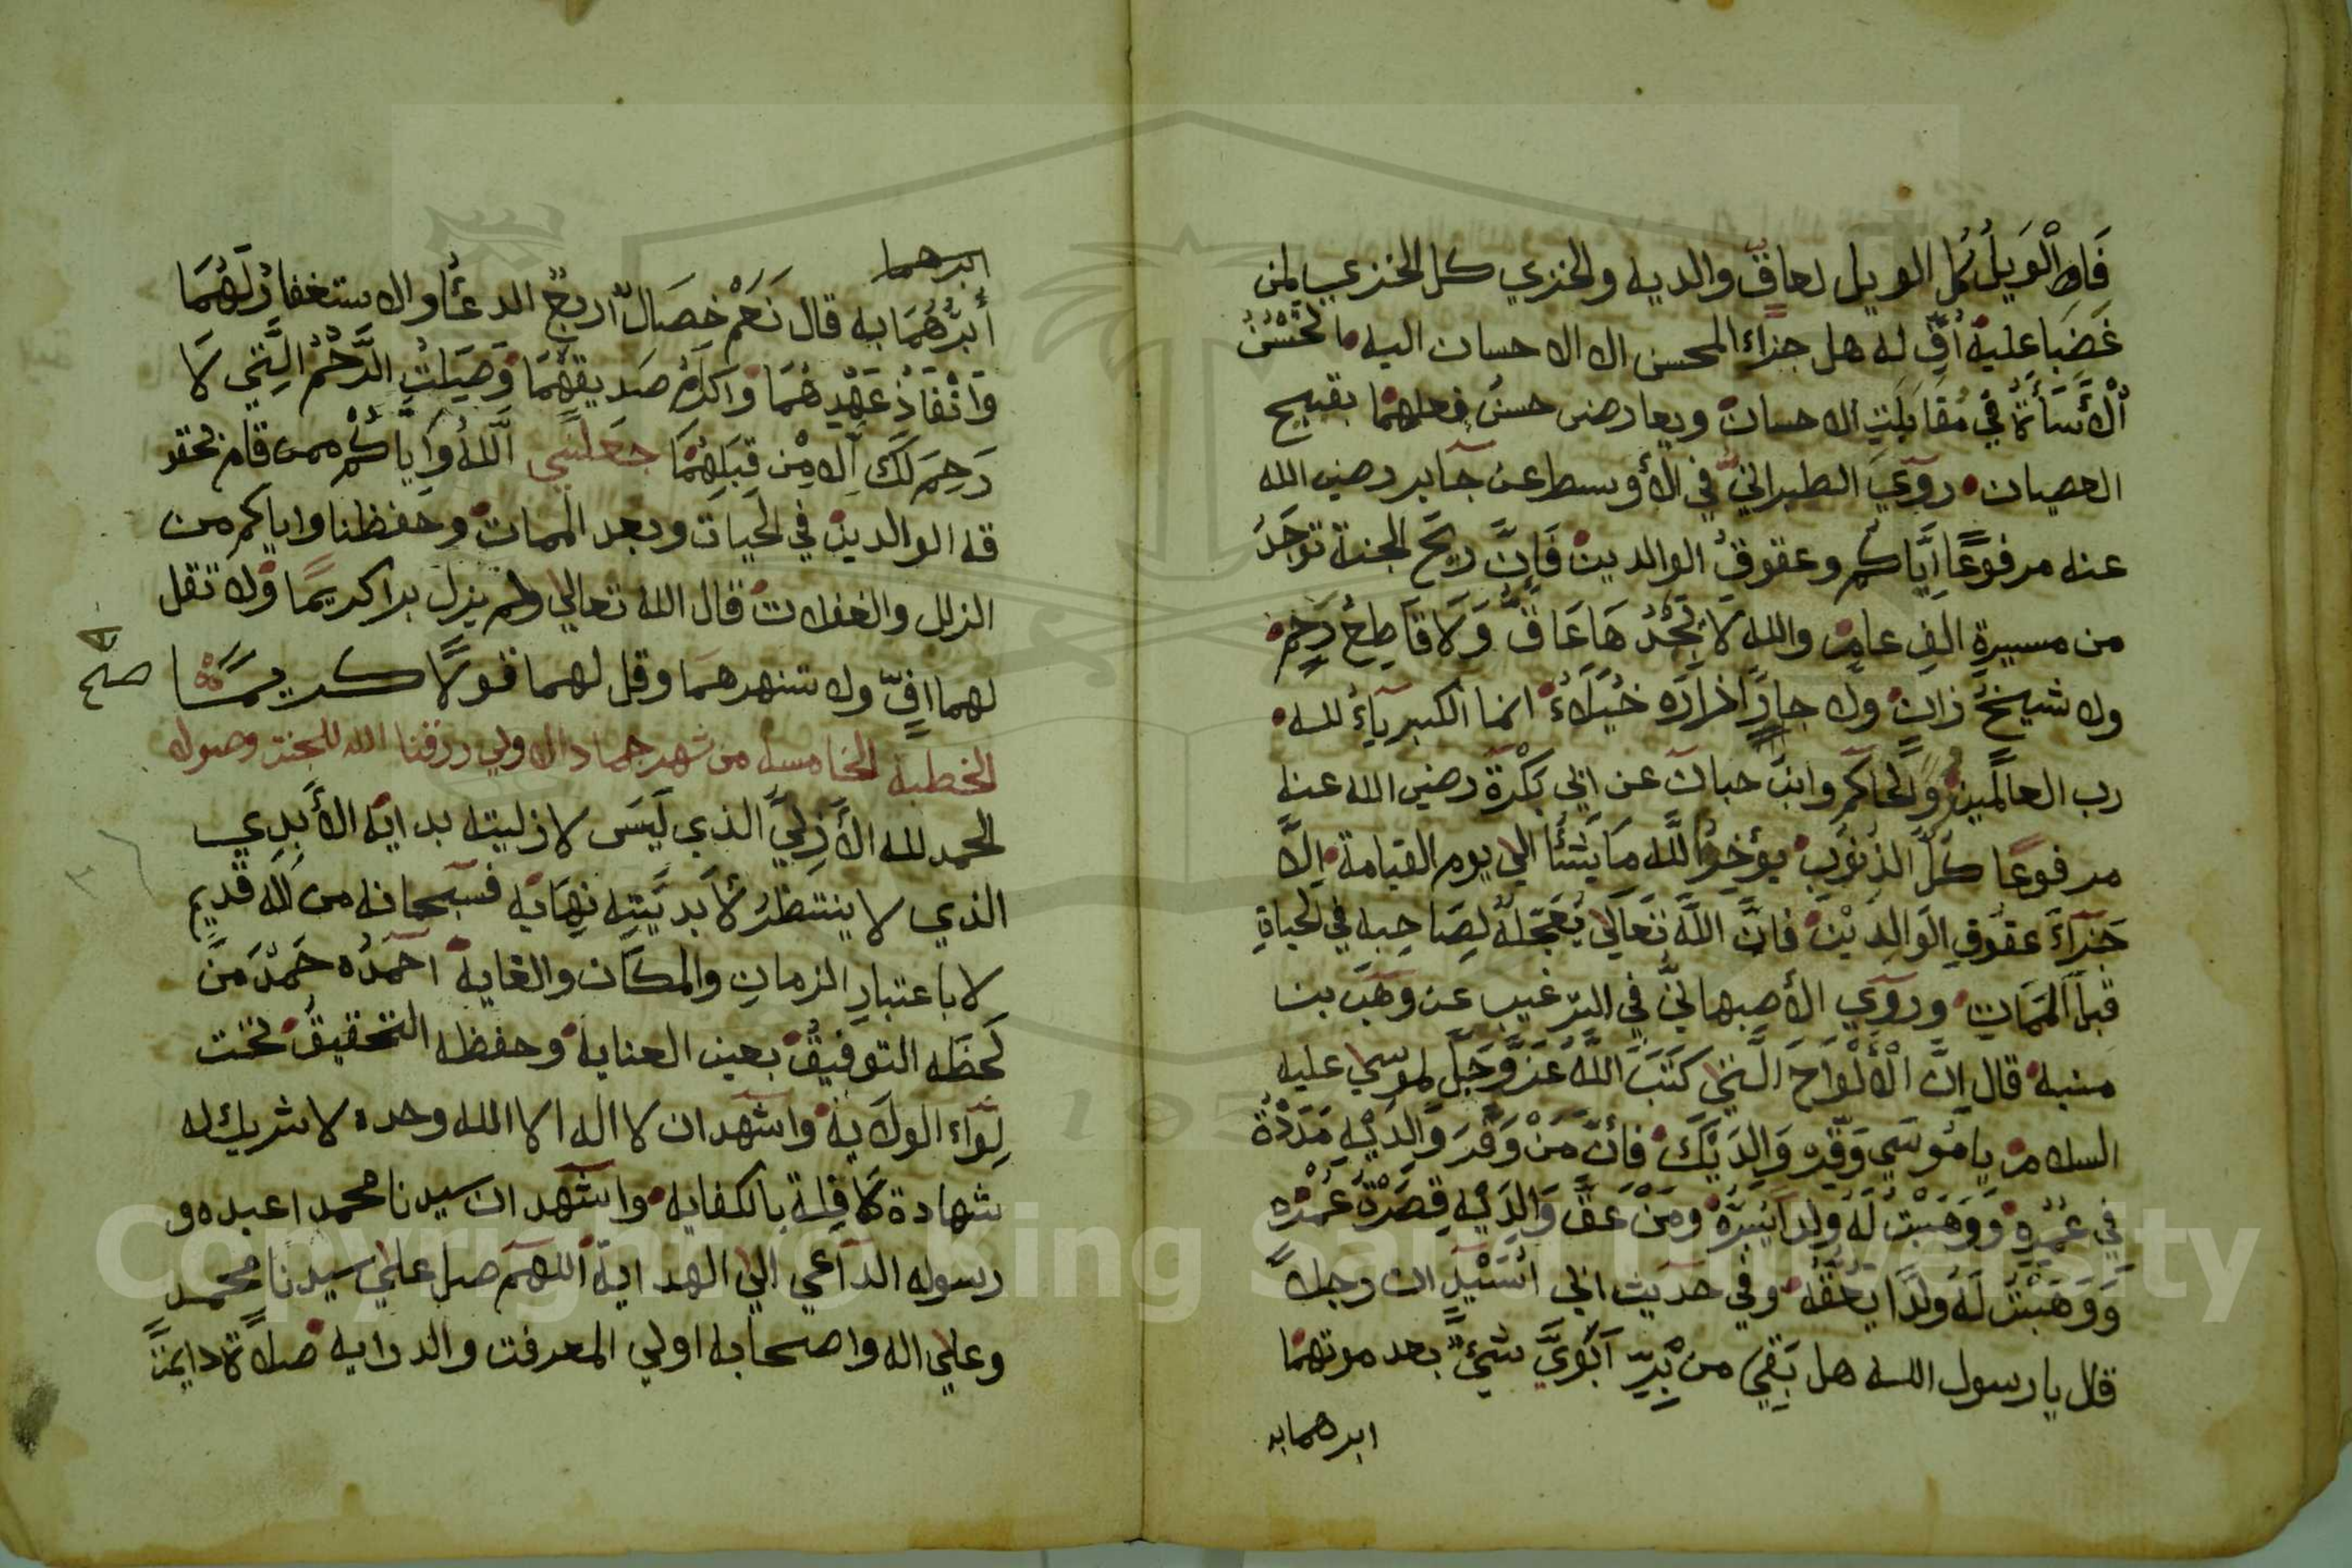 فَالْوَيلُ كُل الويل لعاقّ والديه والخزي كل الخزي لمن
غَضِبَا عليه أُفٍّ له هل جزاء المحسن الا الاحسان اليه ما تحْسُنُ
الْأَسَأَةُ فِي مُقَابَلَتِ الاحسان ويعارض حسنُ فعلهمَا بقبيح
العصيان روَي الطبرانيّ في الأوسط عن جابر رضي الله
عنه مرفوعًا إيَّاكم وعقوقَ الوالدين فَإنَّ ريحَ الجنة توجَدُ
من مسيرةِ الفِ عامٍ والله لا يَجْدُهَا عَاقٌّ وَلَا قَاطِعُ رَحِمٍ
ولا شيخٌ زانٍ ولا جارٌّ ازارَه خُيَلَاءً انما الكبرياءُ لله
رب العالمين والحاكم وابن حبان عن ابي بَكْرَة رضي الله عنه
مرفوعًا كلّ الذنوب يؤخرُ الله مَا يَشَأُ الي يوم القيامة إلَّا
جَزَآءَ عقوقِ الوَالِدَيْن فانَّ اللّهَ تَعَالَي يُعَجّلهُ لِصَاحِبه في الحياةِ
قبلَ المَمَاتِ وروَي الأصبهانيّ في الترغيب عن وهَب بن
منبه قال إنَّ الْأَلْوَاحَ الَّتي كَتَبَ اللّهُ عَزَّ وَجَلَّ لموسَي عليه
السلام يا مُوسَي وَقِّر وَالِدَيْكَ فَأنَّ مَنْ وَقَّرَ وَالِدَيْهِ مَدَدْتُ
فِي عُمُرِهِ وَوَهَبْتُ لَهُ ولدا يَبَرُّهُ ومَنْ عَقَّ وَالِدَيْهِ قصَرْتُ عُمْرَه
وَوَهَبْتُ لَهُ ولَدًا يَعُقّهُ وفي حديث ابي اُسَيْدٍ ان رجلاً
قال يا رسول الله هل بَقِيَ من بِرِّ أبَوَيَّ شيءٌ بعد موتهمَا
ابرهما به
ابرهما
أبَرُّهُمَا به قال نَعَمْ خِصَالٌ اربعٌ الدعَأُ والاستغفارُ لَهُمَا
وَانْفَاذُ عَهْدِهُمَا وَاكرامُ صَديقهُمَا وَصِيَلتُ الرَّحْمُ الَّتِي لَا
رَحِمَ لَكَ إلا مِنْ قِبَلِهِمَا جعَلَنَي اللّهُ وَايَّاكُم ممن قام بحقو
قه الوالدين في الحيات وبعد الممات وحفظنا واياكم من
الزلل والغفلات قال الله تعالي ولم يزل برا كريمًا ولا تقل
لهما افٍّ ولا تنهرهما وقل لهما قولًا كـريـمًـا
صح
الخطبة الخامسه من شهر جماد الاولي رزقنا الله للجنت وصوله
الحمد لله الأَزليّ الذي لَيسَ لازليته بداية الأبَدِي
الذي لا ينتظرُ لأبديَّتِه نِهَايَه فسبحانه من اله قديمٍ
لا باعتبارِ الزمانِ والمكَان والغاية احمدُه حَمْدَ مَنَ
لَحَظَه التوفيقُ بعين العناية وحفظه التحقيقُ تحت
لِوَاءِ الولاية واشهد ان لا اله الا الله وحده لا شريك له
شهادة كَافِلة بالكفاية واشهد ان سيدنا محمدا عبده و
رسوله الداعي الي الهداية اللهم صل علي سيدنا محمـد
وعلي اله واصحابه اولي المعرفت والدرايه صلاةً دايمَةً
Copyright © King Saud University